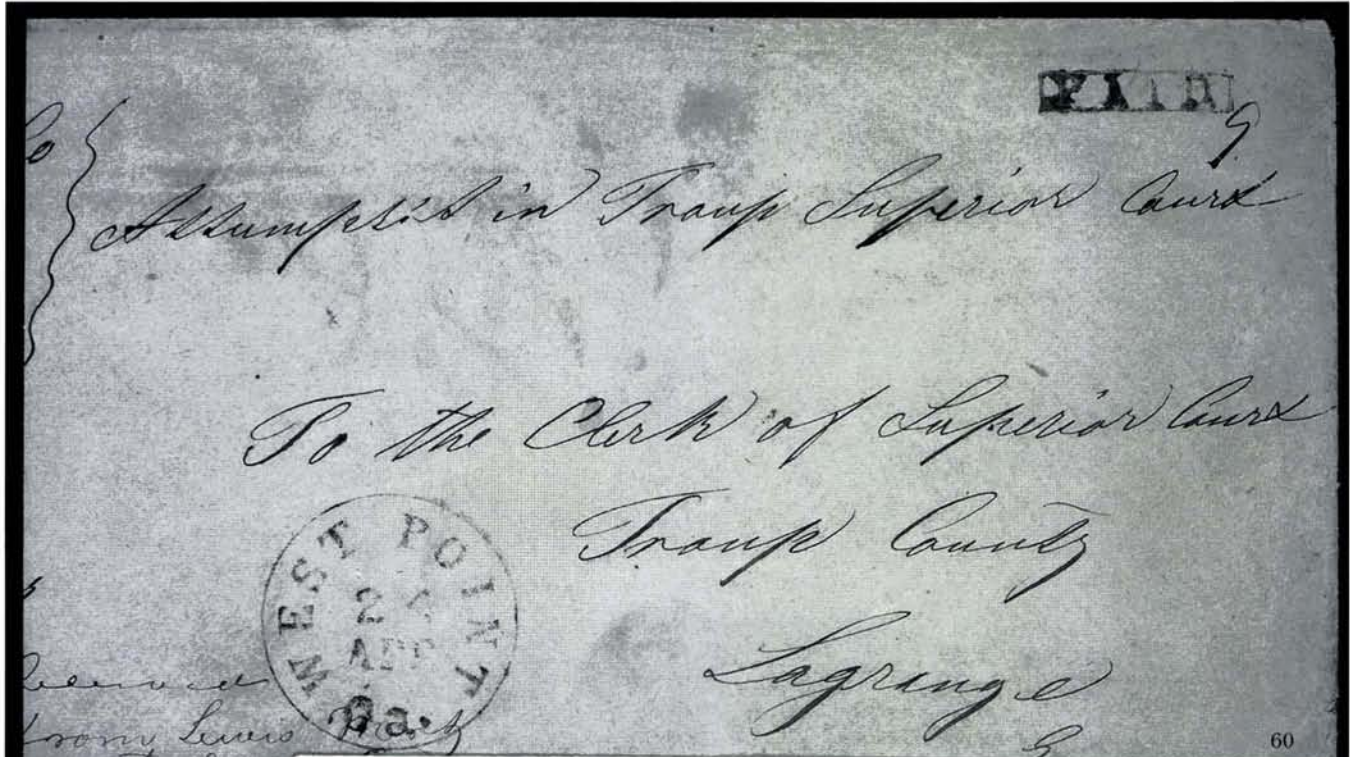 PAID
9
Assumpsit in Troup Superior Court
To the Clerk of Superior Court
Troup County
Lagrange
WEST POINT
2
APR
Ga.
from Lewis
60